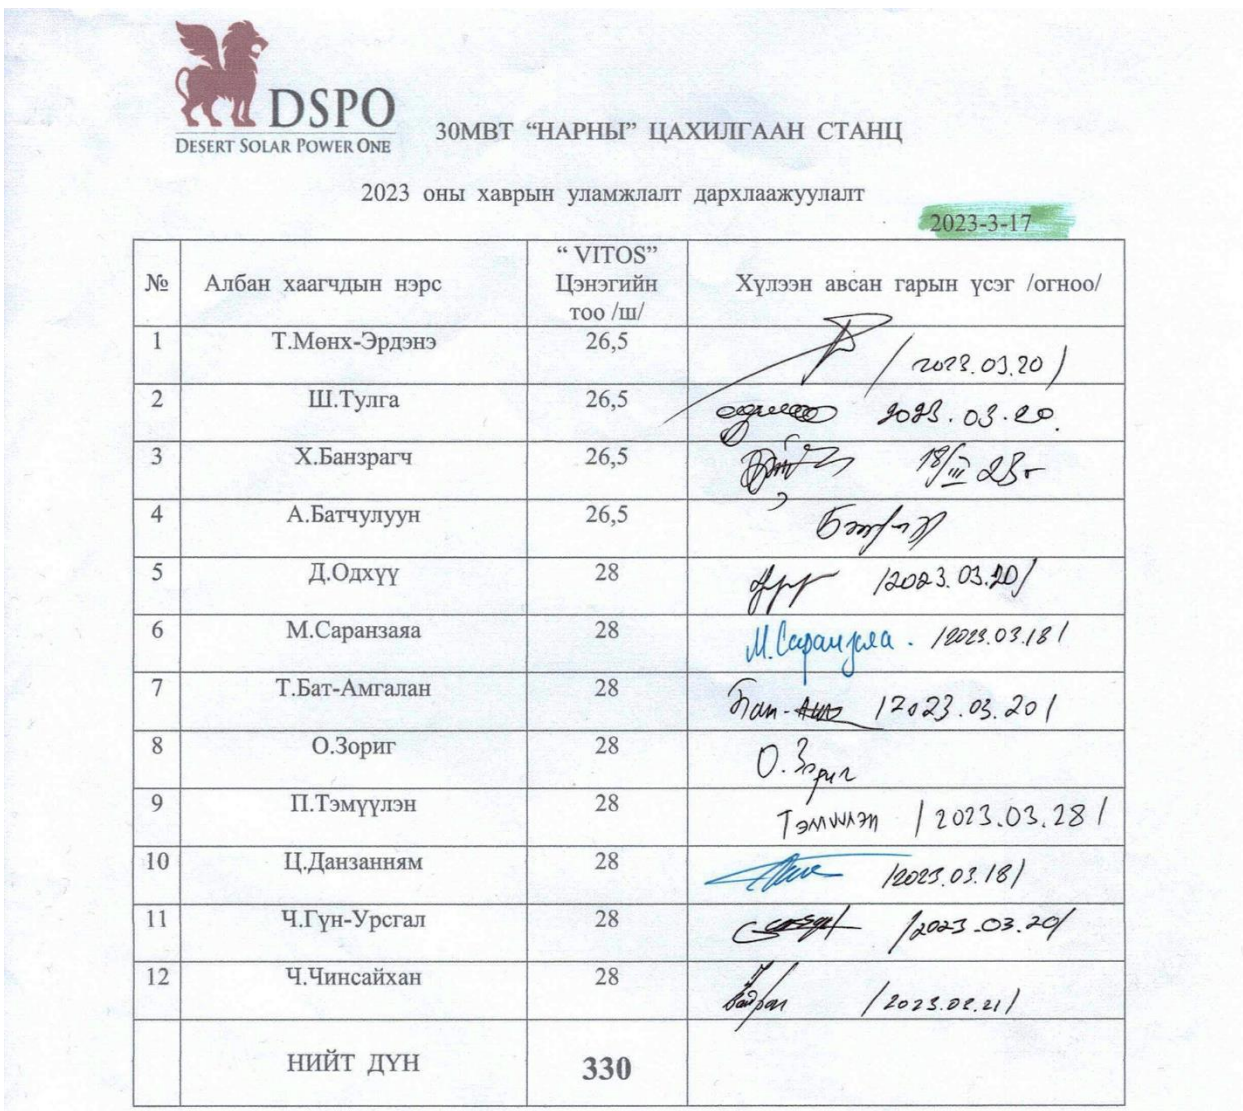 DSPO
DESERT SOLAR POWER ONE
30МВТ “НАРНЫ” ЦАХИЛГААН СТАНЦ
2023 оны хаврын уламжлалт дархлаажуулалт
2023-3-17
№ Албан хаагчдын нэрс “ VITOS” Цэнэгийн тоо /ш/ Хүлээн авсан гарын үсэг /огноо/
1 Т.Мөнх-Эрдэнэ 26,5 / 2023.03.20 /
2 Ш.Тулга 26,5 2023.03.20.
3 Х.Банзрагч 26,5 18/III 23
4 А.Батчулуун 26,5
5 Д.Одхүү 28 /2023.03.20/
6 М.Саранзаяа 28 М.Саранзаяа. /2023.03.18/
7 Т.Бат-Амгалан 28 /2023.03.20/
8 О.Зориг 28 О.Зориг
9 П.Тэмүүлэн 28 Тэмүүлэн / 2023.03.28 /
10 Ц.Данзанням 28 /2023.03.18/
11 Ч.Гүн-Урсгал 28 /2023.03.20/
12 Ч.Чинсайхан 28
НИЙТ ДҮН 330